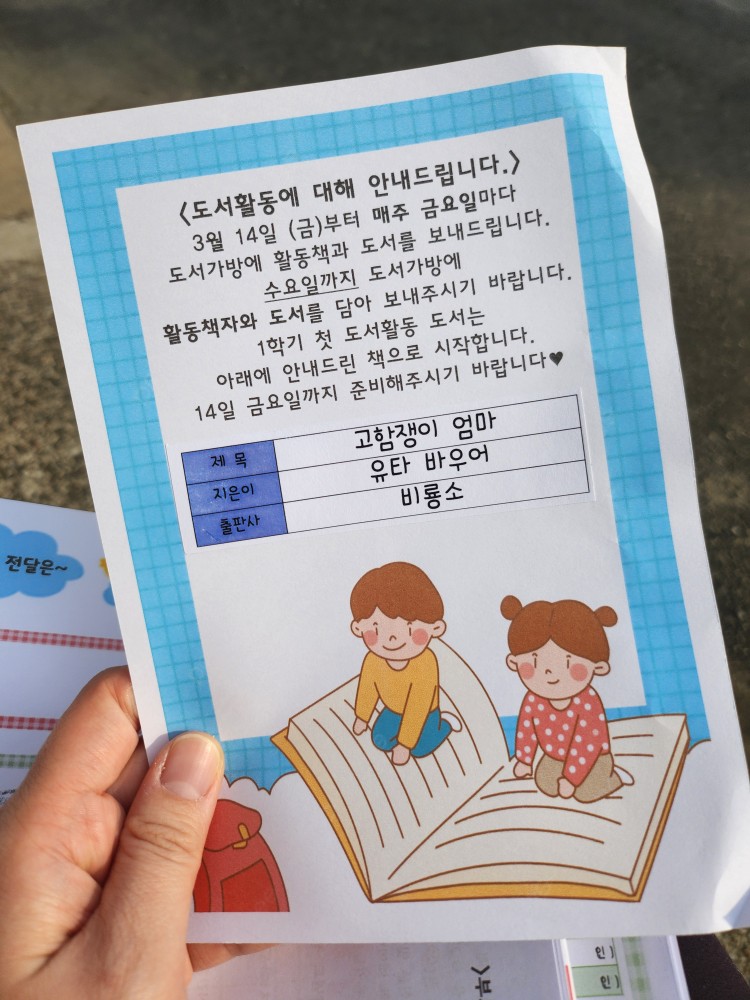 〈도서활동에 대해 안내드립니다.〉
3월 14일 (금)부터 매주 금요일마다
도서가방에 활동책과 도서를 보내드립니다.
수요일까지 도서가방에
활동책자와 도서를 담아 보내주시기 바랍니다.
1학기 첫 도서활동 도서는
아래에 안내드린 책으로 시작합니다.
14일 금요일까지 준비해주시기 바랍니다♥
제 목 고함쟁이 엄마
지은이 유타 바우어
출판사 비룡소
전달은~
인)
인)